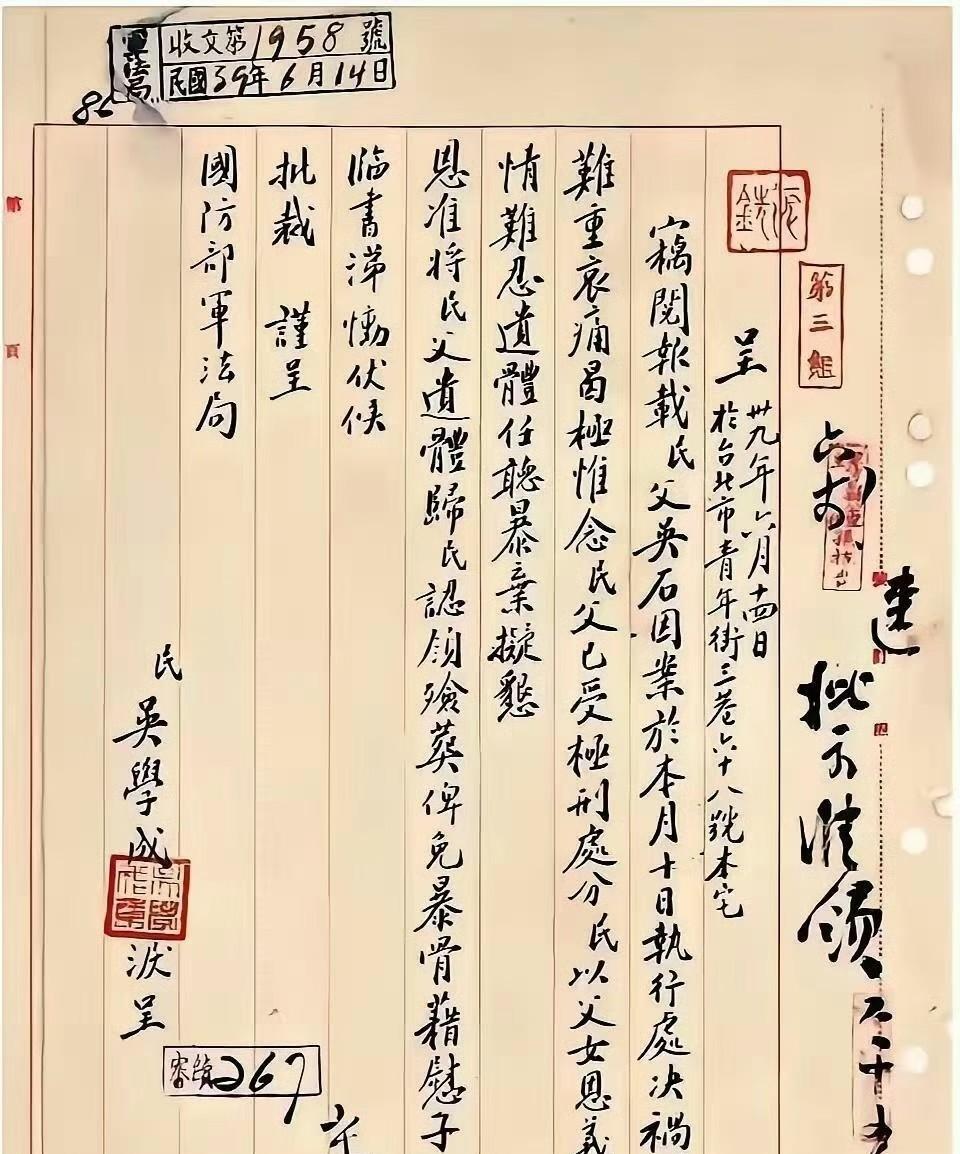 收文第1958號
民國39年6月14日
86
第三組
呈 卅九年六月十四日
於台北市青年街三巷六十八號本宅
竊閱報載民父吳石因案於本月十日執行處決禍
難重哀痛曷極惟念民父已受極刑處分民以父女恩義
情難忍遺體任聽暴棄擬懇
恩准將民父遺體歸民認領殮葬俾免暴骨藉慰子
臨書涕慟伏候
批裁 謹呈
國防部軍法局
民 吳學成 淚呈
267
批示准領